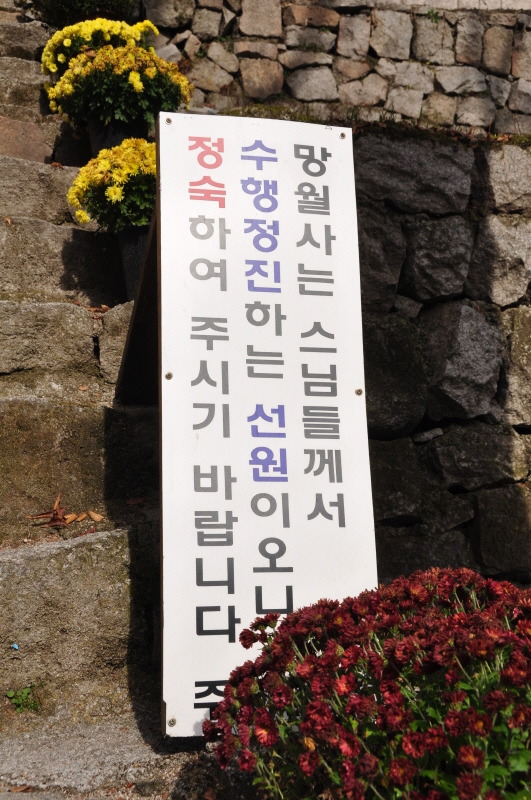 망월사는 스님들께서
수행정진하는 선원이오니
정숙하여 주시기 바랍니다